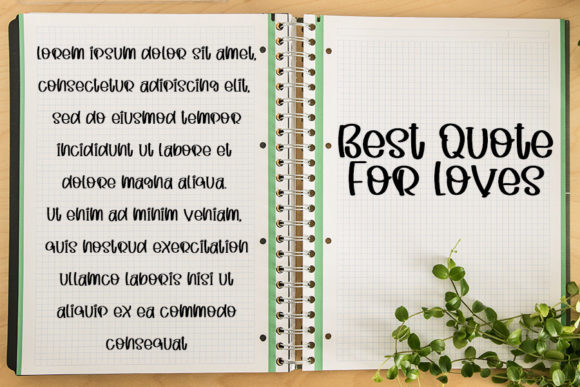 lorem ipsum dolor sit amet,
consectetur adipiscing elit,
sed do eiusmod tempor
incididunt ut labore et
dolore magna aliqua.
Ut enim ad minim veniam,
quis nostrud exercitation
ullamco laboris nisi ut
aliquip ex ea commodo
consequat
Best Quote
For Loves